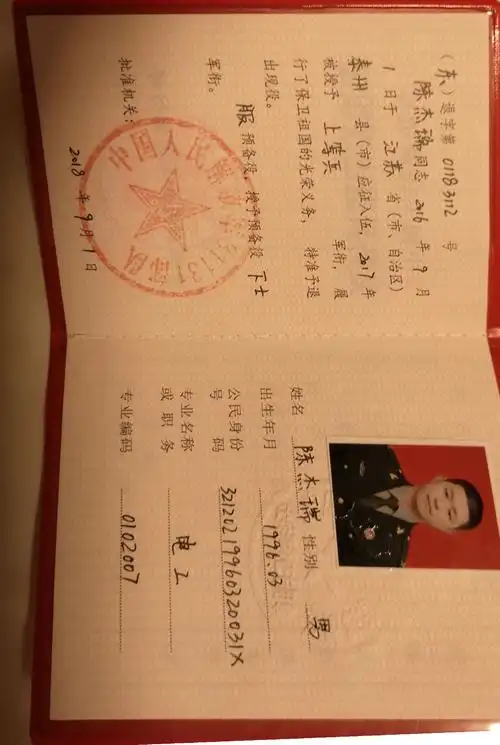 (东)退字第 01183112 号
陈杰瑞同志 2016 年 9 月
1 日于 江苏 省(市、自治区)
泰州 县(市)应征入伍,2017 年
被授予 上等兵 军衔,履
行了保卫祖国的光荣义务,特准予退
出现役。
服 预备役,授予预备役 下士
军衔。
批准机关:
中国人民解放军
31131
部队
2018 年 9 月 1 日
姓名 陈杰瑞 性别 男
出生年月 1996.03
公民身份
号码 32120219960320031X
专业名称
或职务 电工
专业编码 0102007